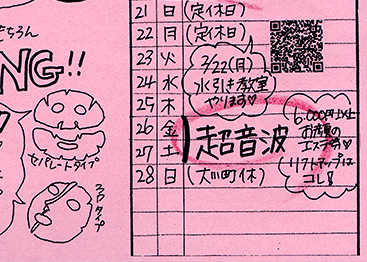 もちろん
NG!!
セパレートタイプ
タイプ
21 日 (定休日)
22 月 (定休日)
23 火
24 水
25 木
26 金
27 土
28 日
2/22(月)
水引き教室
やります♡
超音波
6,000円以上
お顔の
リフトアップは
コレ!